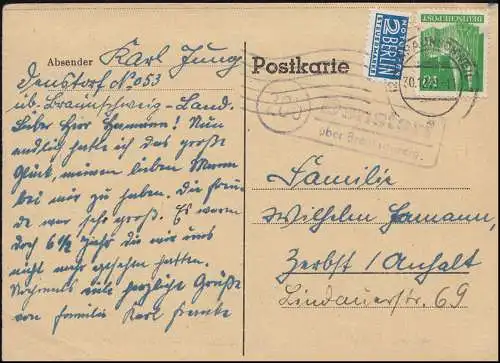 Absender Karl Jung
Denstorf No 053
üb. Braunschweig-Land.
Lieber Herr Hamann! Nun
endlich hatte ich das große
Glück, meinen lieben Mann
bei mir zu haben. Die Freu-
de war sehr groß. Es waren
doch 6 1/2 Jahr die wir uns
nicht mehr gesehen hatten.
Nochmals viele herzliche Grüße
von Familie Karl
Postkarte
NOTOPFER
2 BERLIN
STEUERMARKE
DEUTSCHE POST
BRAUNSCHWEIG
20b
Denstorf
über Braunschweig.
Familie
Wilhelm Hamann,
Zerbst / Anhalt
Lindauerstr. 69